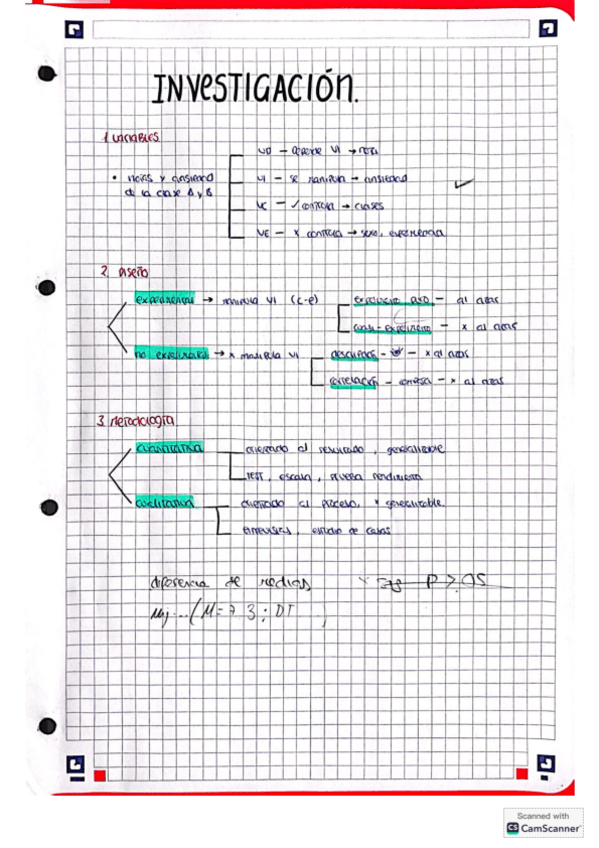 INVESTIGACIÓN.
1. Variables.
VD - depende VI → nota
• notas y ansiedad
de la clase A y B
VI - se manipula → ansiedad
VC - ✓ controla → clases
VE - x controla → sexo, experiencia
2. Diseño
experimental → manipula VI (c-e)
experimento puro - al azar
cuasi-experimento - x al azar
no experimental → x manipula VI
descriptivo - - x al azar
correlación - - x al azar
3. Metodología
cuantitativa
orientado al resultado, generalizable
TEST, escala, prueba rendimiento
cualitativa
orientado al proceso, x generalizable.
entrevistas, estudio de casos
diferencia de medias
P > .05
(M= 7 3; DT )
Scanned with
CS CamScanner